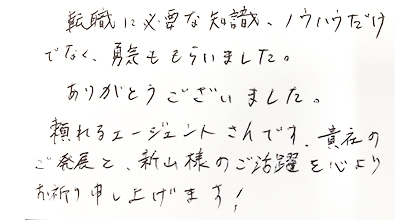 転職に必要な知識、ノウハウだけ
でなく、勇気ももらいました。
ありがとうございました。
頼れるエージェントさんです。貴社の
ご発展と、新山様のご活躍を心より
お祈り申し上げます！